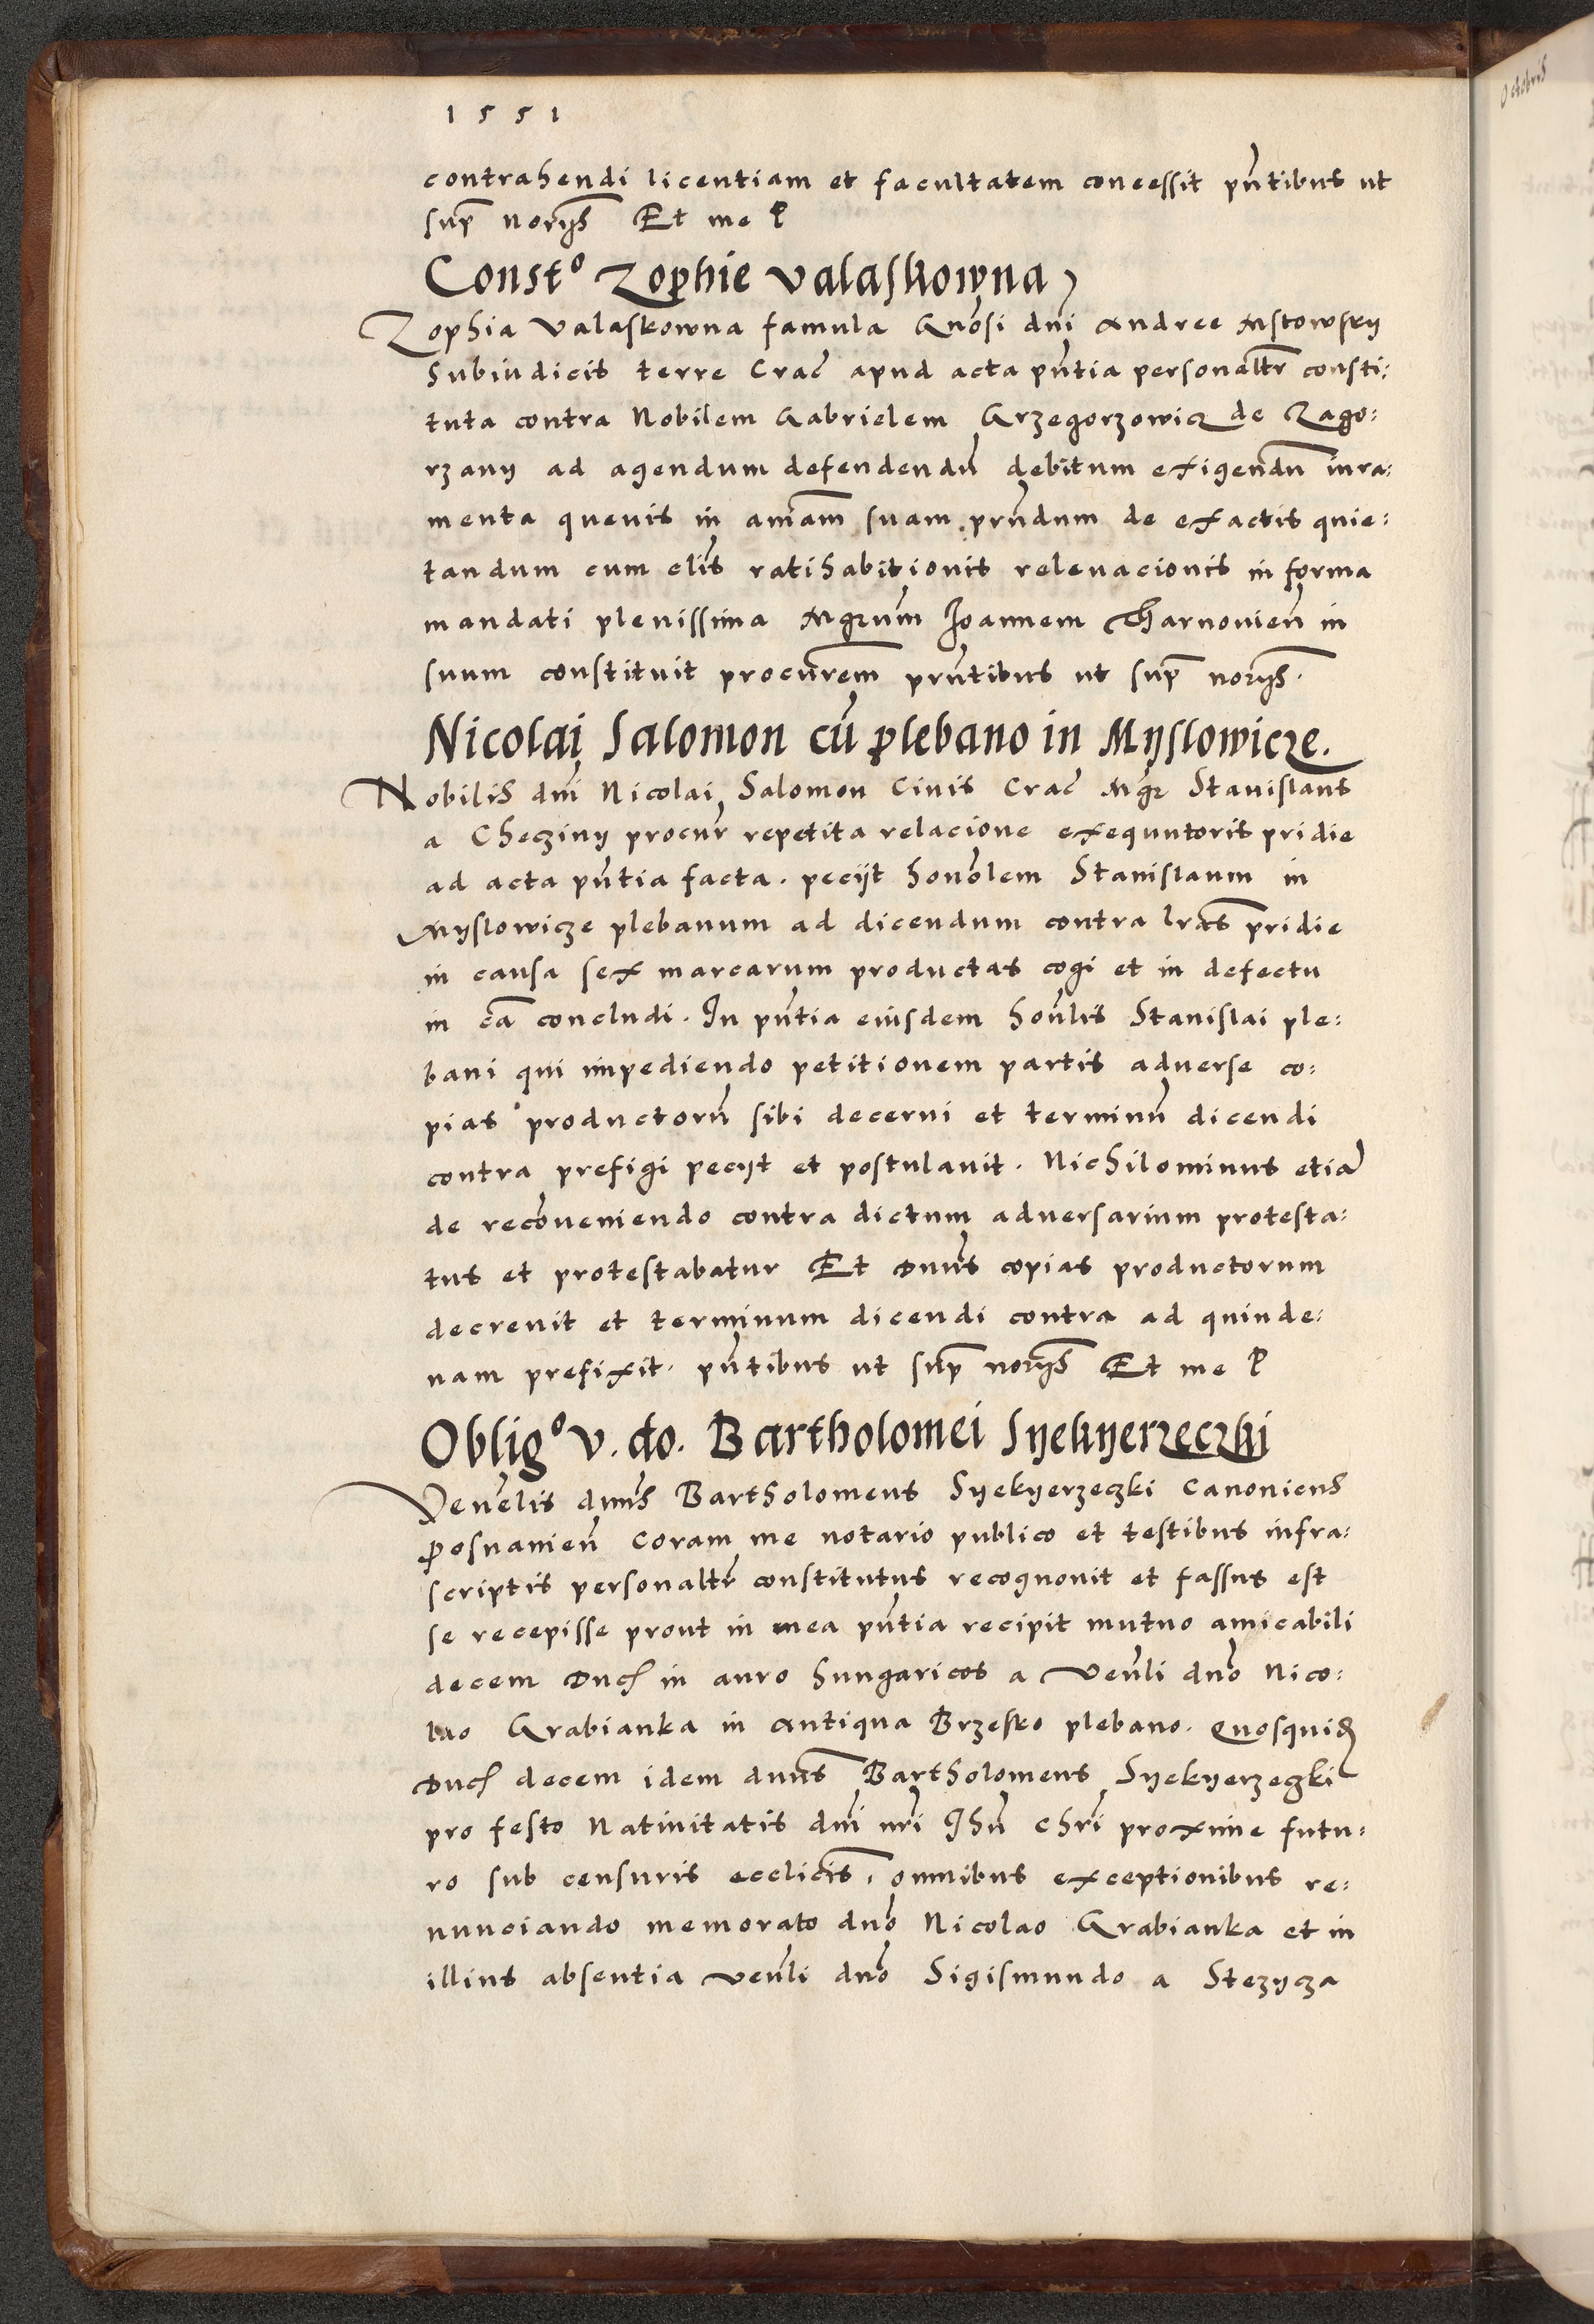 1551
contrahendi licentiam et facultatem concessit pñtibus ut
sup̄ norijs Et me P
Const° Zophie Valaskowna
Zophia Valaskowna famula Gnosi dni Andree Mstowsky
Subiudicis terre Crac apud acta pñtia personaltr consti:
tuta contra Nobilem Gabrielem Grzegorzowicz de Zago:
rzany ad agendum defendendū debitum exigendū iura:
menta quevis in aiam̄ suam prndum de exactis quie:
tandum cum clis ratihabitionis relevacionis in forma
mandati plenissima Mgrum Joannem Tharnovien̄ in
suum constituit procurem̄ prntibus ut sup̄ norijs.
Nicolai Salomon cū plebano in Myslowicze.
Nobilis dni Nicolai Salomon Civis Crac Mgr Stanislaus
a Checziny procur̄ repetita relacione exequutoris pridie
ad acta pñtia facta. pecijt honolem Stanislaum in
Myslowicze plebanum ad dicendum contra lras pridie
in causa sex marcarum productas cogi et in defectu
in cā concludi. In pñtia eiusdem honlis Stanislai ple:
bani qui impediendo petitionem partis adverse co:
pias productorū sibi decerni et terminū dicendi
contra prefigi pecijt et postulavit. Nichilominus etiā
de reconveniendo contra dictum adversarium protesta:
tus et protestabatur Et Dnus copias productorum
decrevit et terminum dicendi contra ad quinde:
nam prefixit. pñtibus ut sup̄ norijs Et me P
Oblig° v. do. Bartholomei Syekyerzeczki
Venelis dnus Bartholomeus Syekyerzeczki Canonicus
Posnanien̄ Coram me notario publico et testibus infra:
scriptis personaltr constitutus recognovit et fassus est
se recepisse prout in mea pñtia recipit mutuo amicabili
decem Duc in auro hungaricos a Venli dno Nico:
lao Grabianka in Antiqua Brzesko plebano. Quosquid
Duc decem idem dnus Bartholomeus Syekyerzeczki
pro festo Nativitatis dni nri Jhu Chri proxime futu:
ro sub censuris ecclicis, omnibus exceptionibus re:
nunciando memorato dno Nicolao Grabianka et in
illius absentia venli dno Sigismundo a Stezycza
Octobris